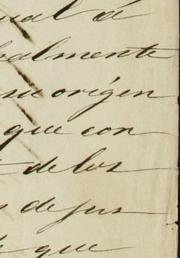 ual á
almente
su orígen
que con
de los
de jus
que